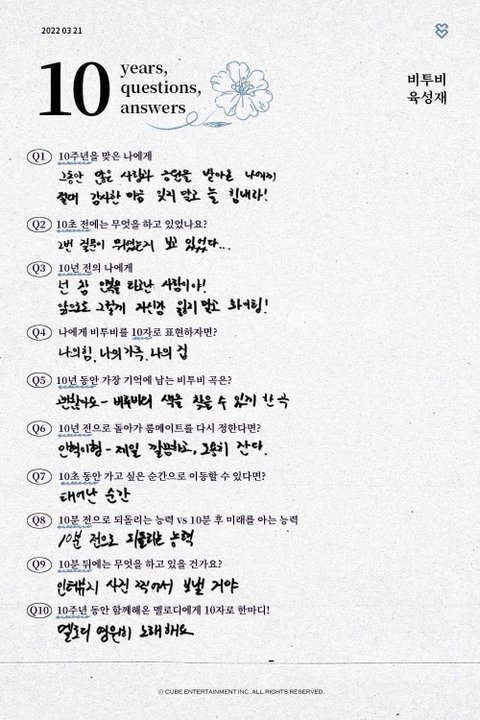 2022 03 21
10 years,
questions,
answers
비투비
육성재
Q1 10주년을 맞은 나에게
그동안 많은 사랑과 응원을 받아온 나에게
절대 감사한 마음 잊지 말고 늘 힘내라!
Q2 10초 전에는 무엇을 하고 있었나요?
2번 질문이 뭐였는지 보고 있었다...
Q3 10년 전의 나에게
넌 참 인복을 타고난 사람이야!
앞으로도 그렇게 자신감 잃지 말고 화이팅!
Q4 나에게 비투비를 10자로 표현하자면?
나의힘, 나의가족, 나의 집
Q5 10년 동안 가장 기억에 남는 비투비 곡은?
괜찮아요 - 비투비의 색을 찾을 수 있게 한 곡
Q6 10년 전으로 돌아가 룸메이트를 다시 정한다면?
민혁이형 - 제일 깔끔하고, 조용히 잔다.
Q7 10초 동안 가고 싶은 순간으로 이동할 수 있다면?
태어난 순간
Q8 10분 전으로 되돌리는 능력 vs 10분 후 미래를 아는 능력
10분 전으로 되돌리는 능력
Q9 10분 뒤에는 무엇을 하고 있을 건가요?
인터뷰지 사진 찍어서 보낼 거야
Q10 10주년 동안 함께해온 멜로디에게 10자로 한마디!
멜로디 영원히 노래해요
© CUBE ENTERTAINMENT INC. ALL RIGHTS RESERVED.